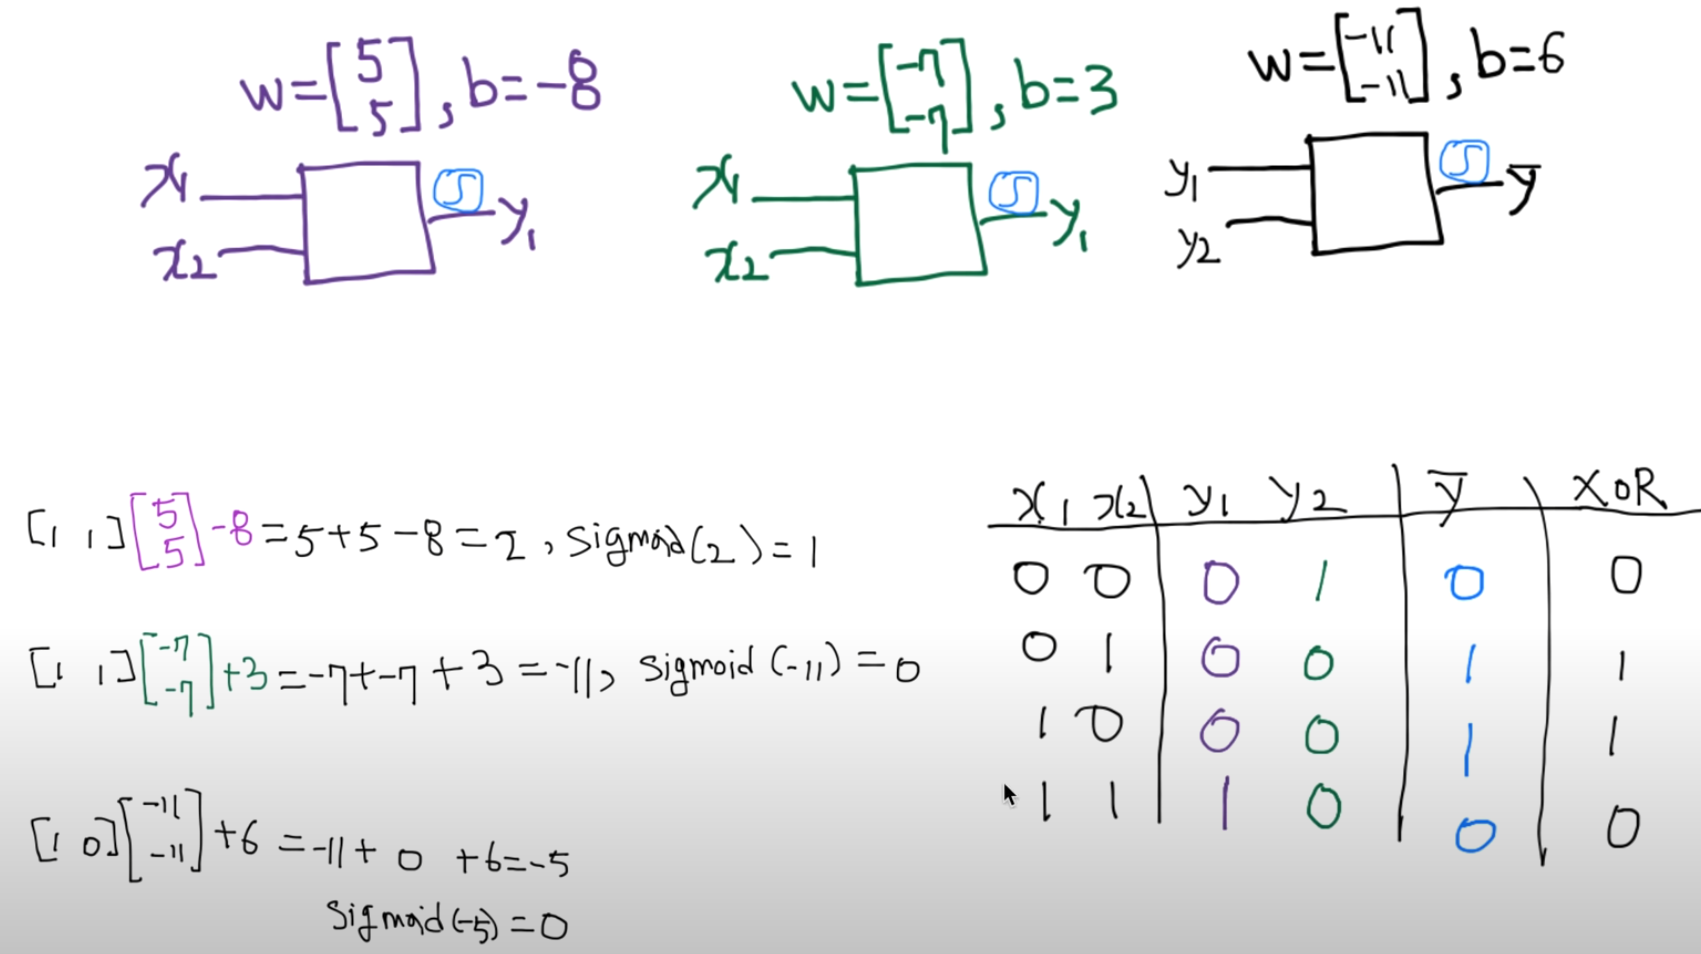 w=[5 5], b=-8
x1
x2
S
y1
w=[-7 -7], b=3
x1
x2
S
y1
w=[-11 -11], b=6
y1
y2
S
y̅
[1 1][5 5]-8=5+5-8=2, sigmoid(2)=1
[1 1][-7 -7]+3=-7+-7+3=-11, sigmoid(-11)=0
[1 0][-11 -11]+6=-11+0+6=-5
sigmoid(-5)=0
x1 x2 y1 y2 y̅ XOR
0 0 0 1 0 0
0 1 0 0 1 1
1 0 0 0 1 1
1 1 1 0 0 0